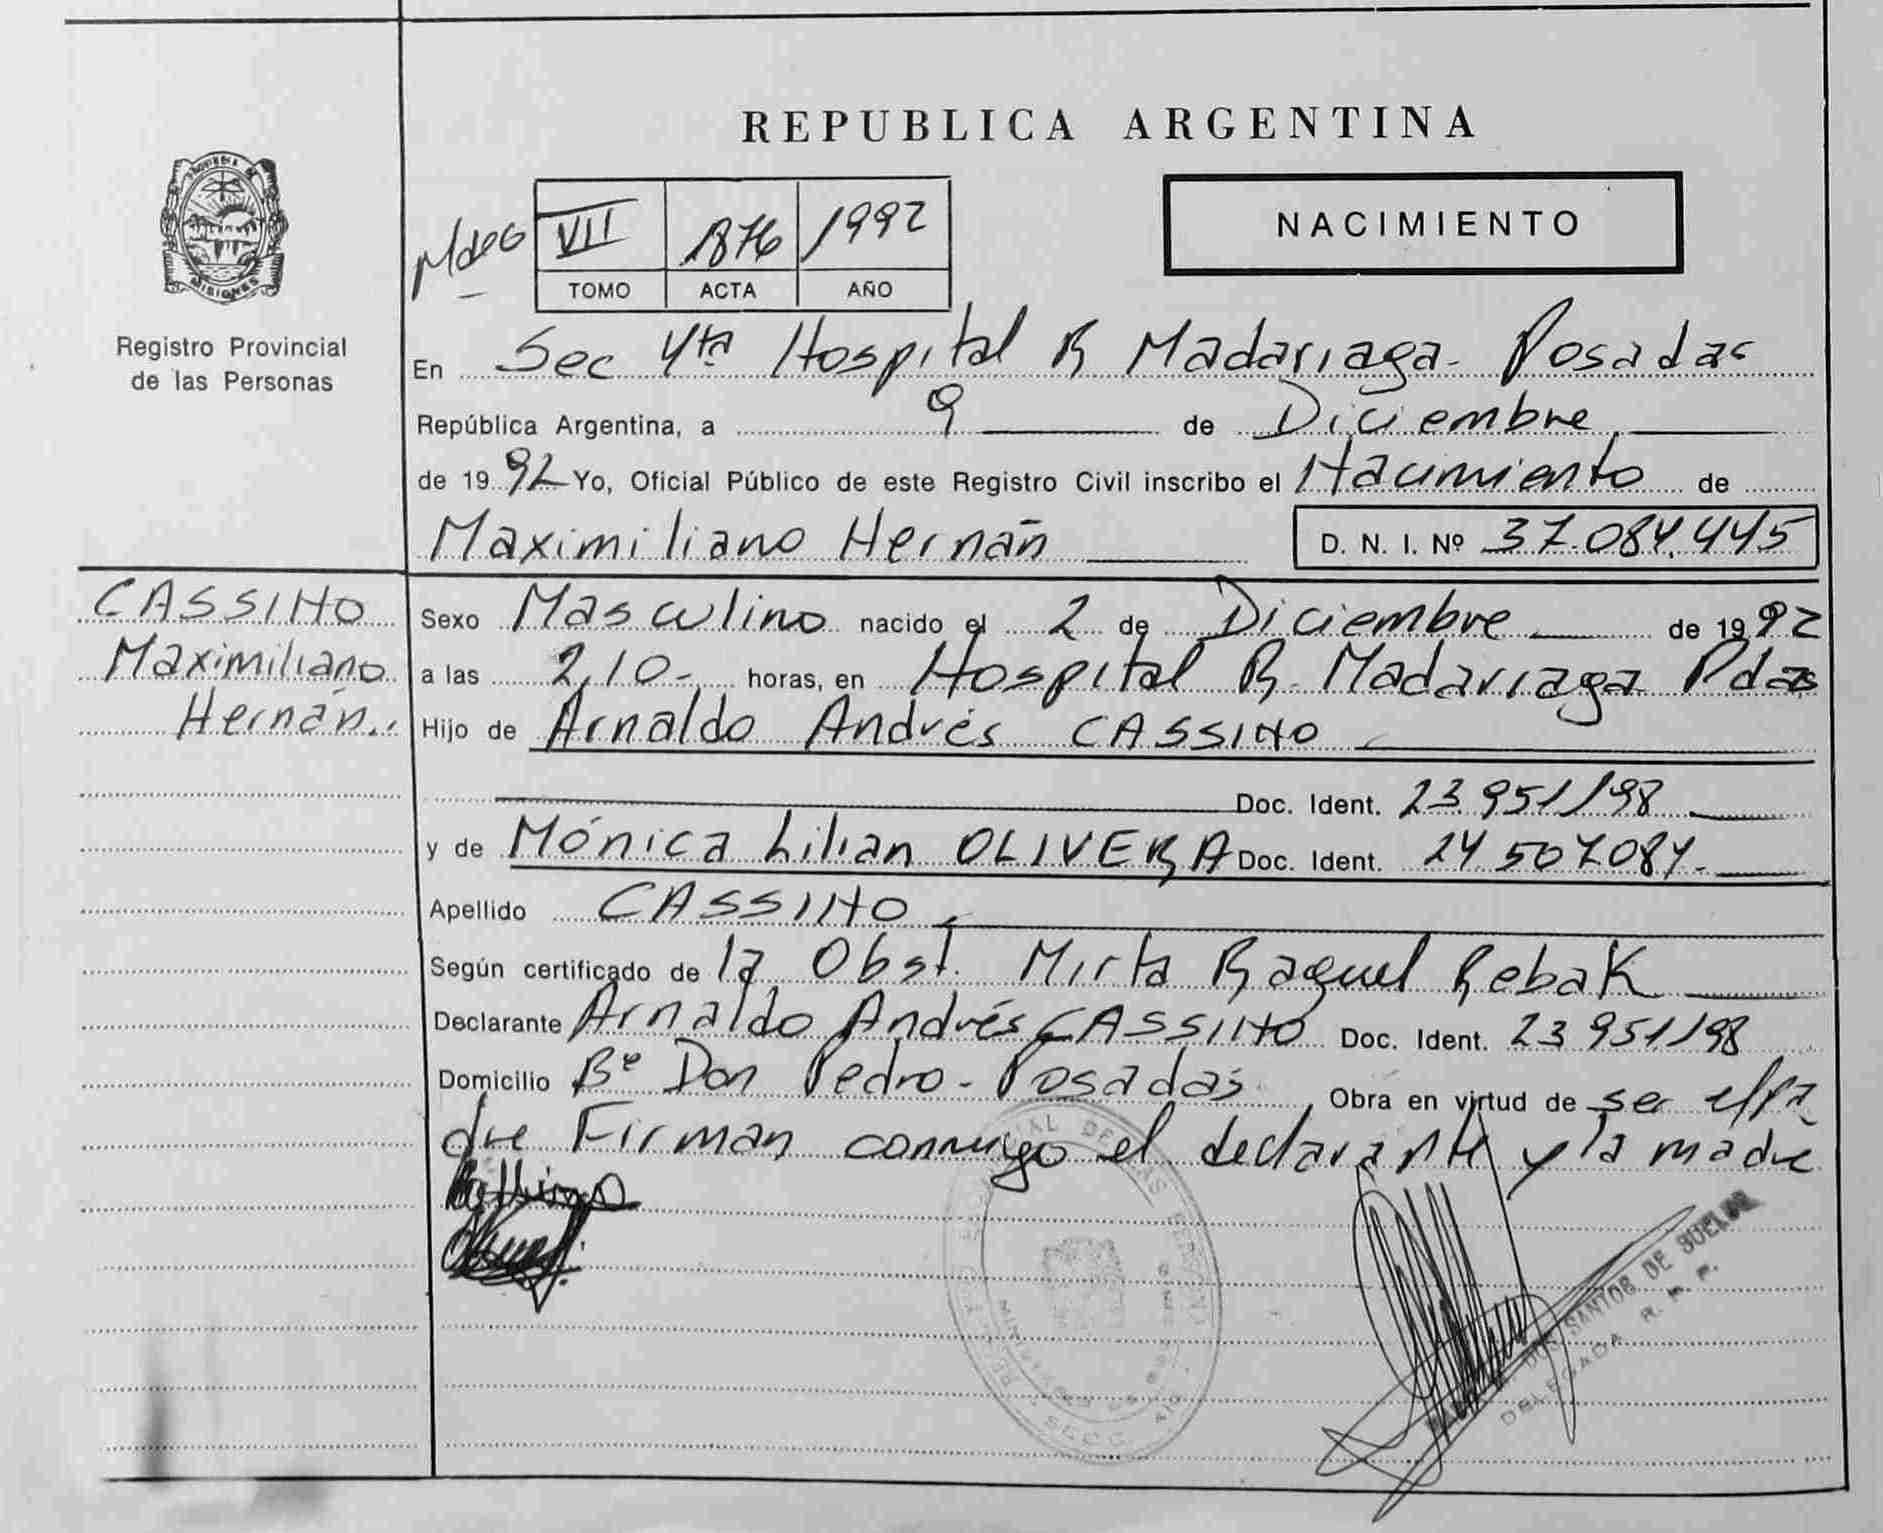 REPUBLICA ARGENTINA
PROVINCIA DE MISIONES
Registro Provincial
de las Personas
NACIMIENTO
VII 1876 1992
TOMO ACTA AÑO
En Sec 4ta Hospital R Madariaga - Posadas
República Argentina, a 9 de Diciembre
de 1992 Yo, Oficial Público de este Registro Civil inscribo el Nacimiento de
Maximiliano Hernán D. N. I. Nº 37.084.445
CASSINO
Maximiliano
Hernán..
Sexo Masculino nacido el 2 de Diciembre de 1992
a las 2,10- horas, en Hospital R. Madariaga Pdas
Hijo de Arnaldo Andrés CASSINO
Doc. Ident. 23.951.198
y de Mónica Lilian OLIVERA Doc. Ident. 24.507.084.
Apellido CASSINO
Según certificado de la Obst. Mirta Raquel Rebak
Declarante Arnaldo Andrés CASSINO Doc. Ident. 23.951.198
Domicilio Bº Don Pedro - Posadas Obra en virtud de ser el pa
dre Firman conmigo el declarante y la madre
DOS SANTOS DE
DELEGADA R. P. P.